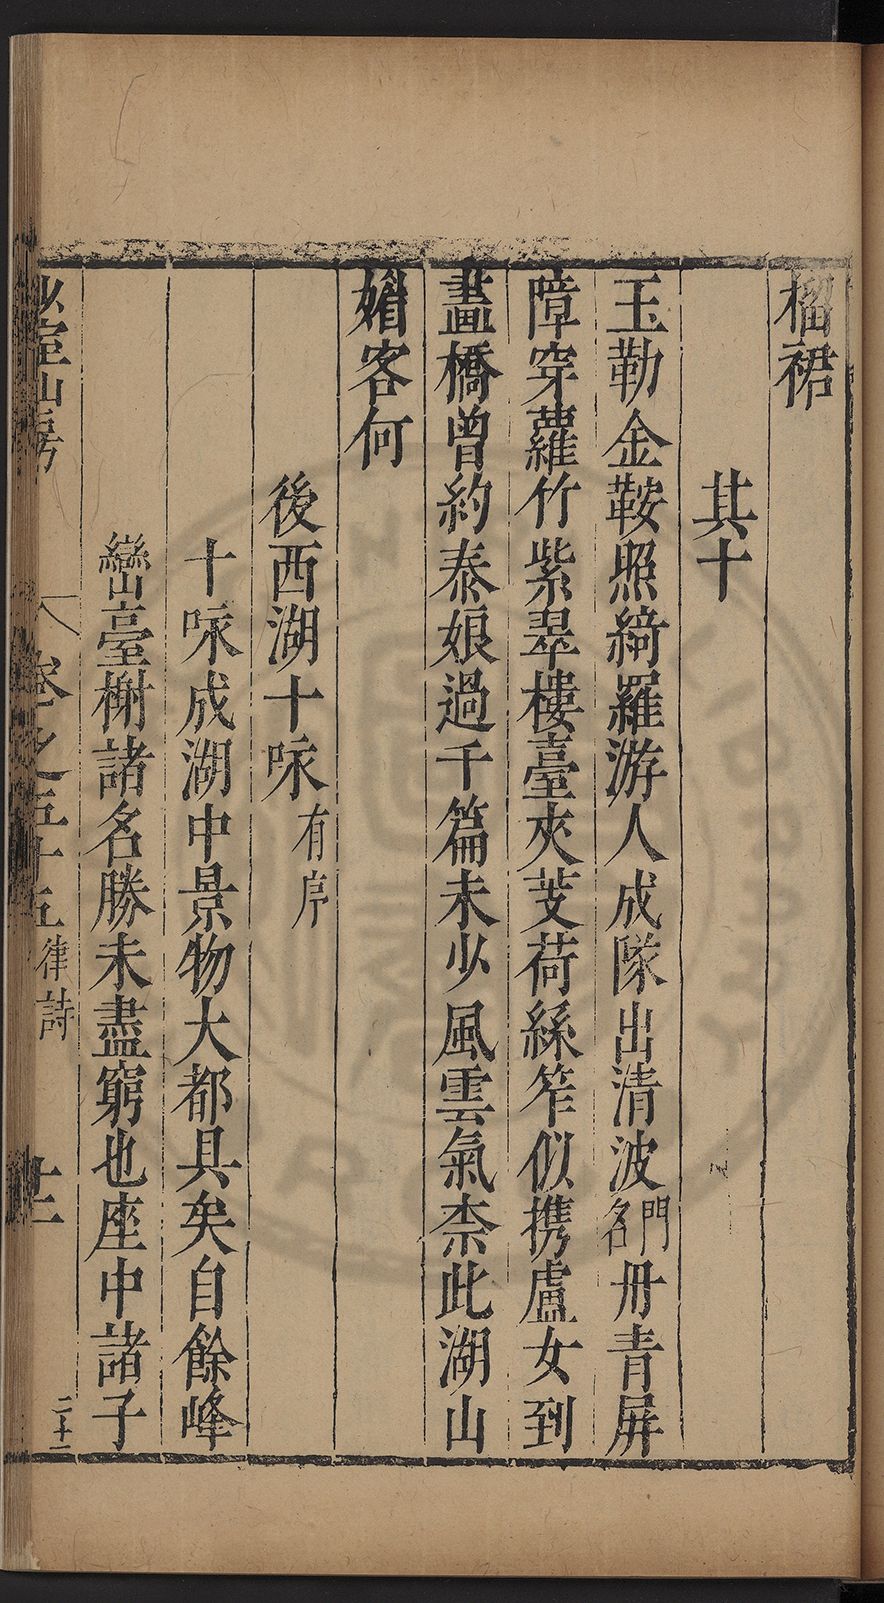 榴裙
其十
玉勒金鞍照綺羅游人成隊出清波門名丹青屏
障穿蘿竹紫翠樓臺夾芰荷絲笮似攜盧女到
畫橋曾約泰娘過千篇未少風雲氣柰此湖山
媚客何
後西湖十咏有序
十咏成湖中景物大都具矣自餘峰
巒臺榭諸名勝未盡窮也座中諸子
少室山房
卷之五十五律詩
廿二
二十二